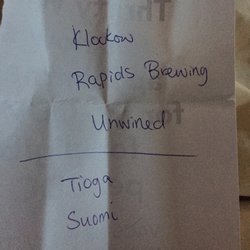 Klockow
Rapids Brewing
Unwined
Tioga
Suomi